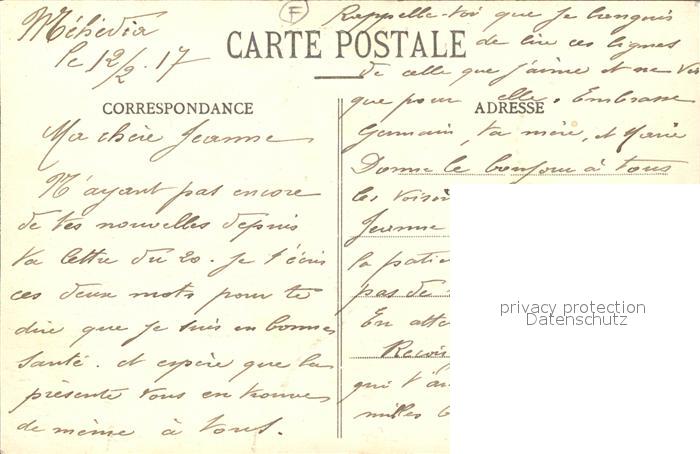 Méhédia
le 12/2.17
F
CARTE POSTALE
CORRESPONDANCE
Ma chère Jeanne
N'ayant pas encore
de tes nouvelles depuis
ta lettre du 20. Je t'écris
ces deux mots pour te
dire que je suis en bonne
santé. et espère que la
présente vous en trouve
de même à tous.
Rappelle-toi que je languis
de lire ces lignes
de celle que j'aime et ne vis
que pour elle. Embrasse
ADRESSE
Germain, ta mère, et Marie
Donne le bonjour à tous
les voisi
Jeanne
la patie
pas de
En atte
Reçois
qui t'ai
milles b
privacy protection
Datenschutz